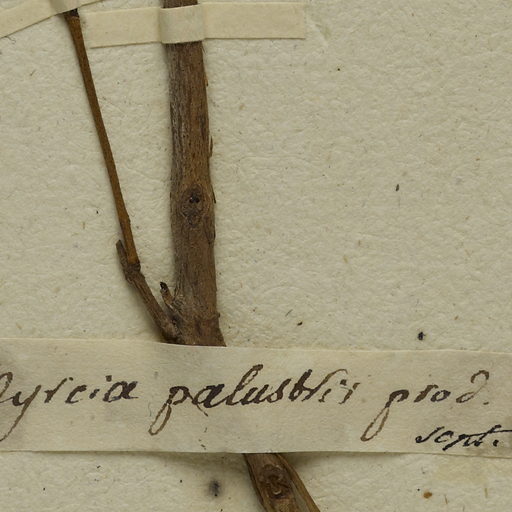 Myrcia palustris prod.
sept.